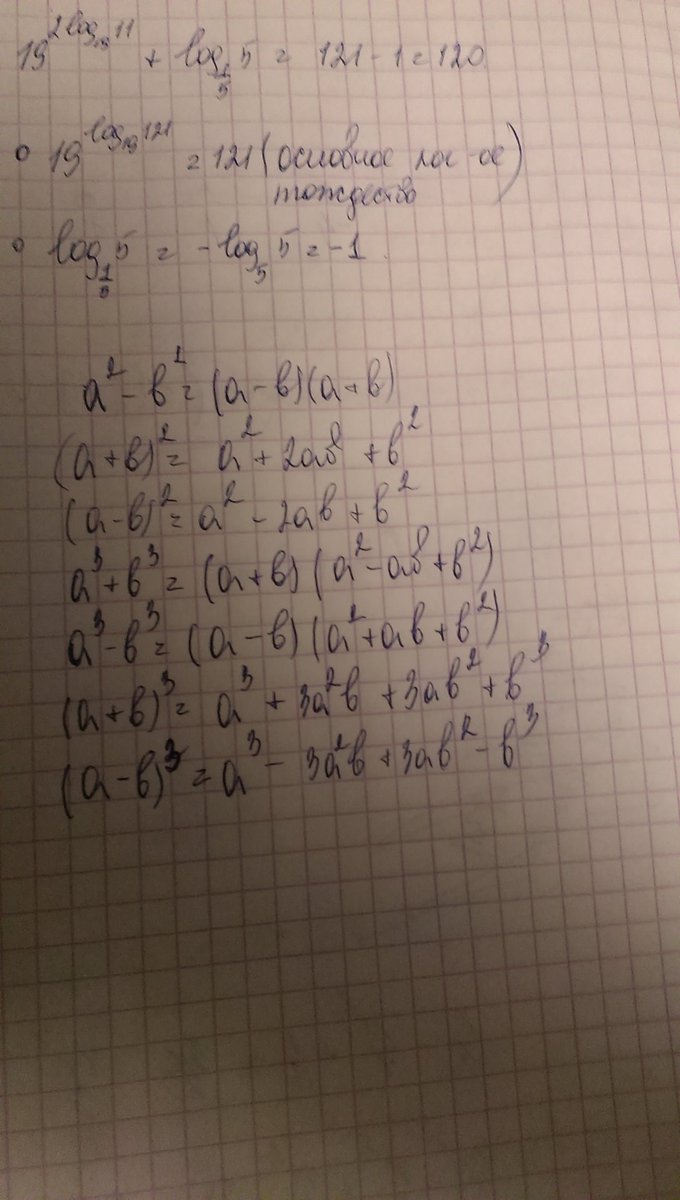 19^{2log_{19}11} + log_{\frac{1}{5}}5 = 121 - 1 = 120
° 19^{log_{19}121} = 121 (основное лог-ое
тождество)
° log_{\frac{1}{5}}5 = -log_{5}5 = -1.
a² - в² = (a - в)(a + в)
(a + в)² = a² + 2aв + в²
(a - в)² = a² - 2aв + в²
a³ + в³ = (a + в)(a² - aв + в²)
a³ - в³ = (a - в)(a² + aв + в²)
(a + в)³ = a³ + 3a²в + 3aв² + в³
(a - в)³ = a³ - 3a²в + 3aв² - в³